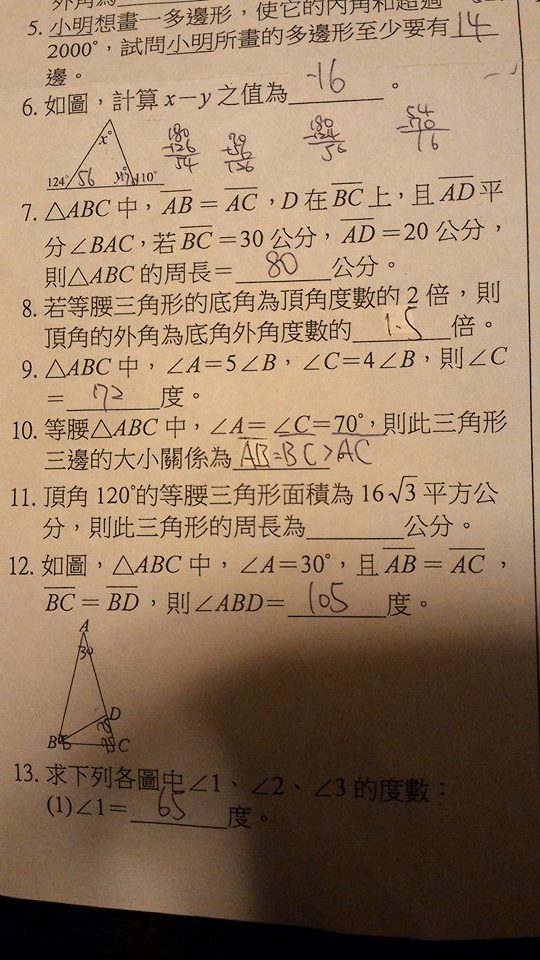 外角為
5. 小明想畫一多邊形，使它的內角和超過
2000°，試問小明所畫的多邊形至少要有 14
邊。
6. 如圖，計算 x－y 之值為 -16 。
x°
124° 56 110°
180
-126
54
180
-124
56
54
-70
16
7. △ABC 中，AB＝AC，D 在 BC 上，且 AD 平
分∠BAC，若 BC＝30 公分，AD＝20 公分，
則△ABC 的周長＝ 80 公分。
8. 若等腰三角形的底角為頂角度數的 2 倍，則
頂角的外角為底角外角度數的 1.5 倍。
9. △ABC 中，∠A＝5∠B，∠C＝4∠B，則∠C
＝ 72 度。
10. 等腰△ABC 中，∠A＝∠C＝70°，則此三角形
三邊的大小關係為 AB=BC>AC
11. 頂角 120°的等腰三角形面積為 16√3 平方公
分，則此三角形的周長為 公分。
12. 如圖，△ABC 中，∠A＝30°，且 AB＝AC，
BC＝BD，則∠ABD＝ 105 度。
A
30
D
B C
13. 求下列各圖中∠1、∠2、∠3 的度數：
(1)∠1＝ 65 度。